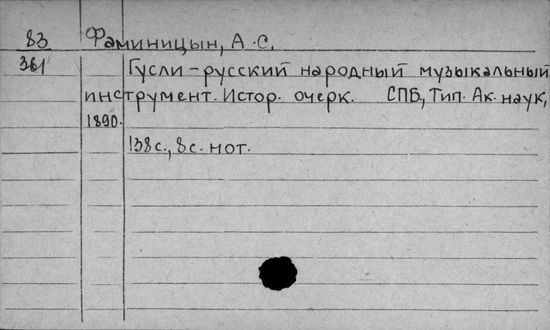 83 Фаминицын, А.С.
361 Гусли-русский народный музыкальный
инструмент. Истор. очерк. СПБ, Тип. Ак. наук,
1890.
138с., 8с. нот.